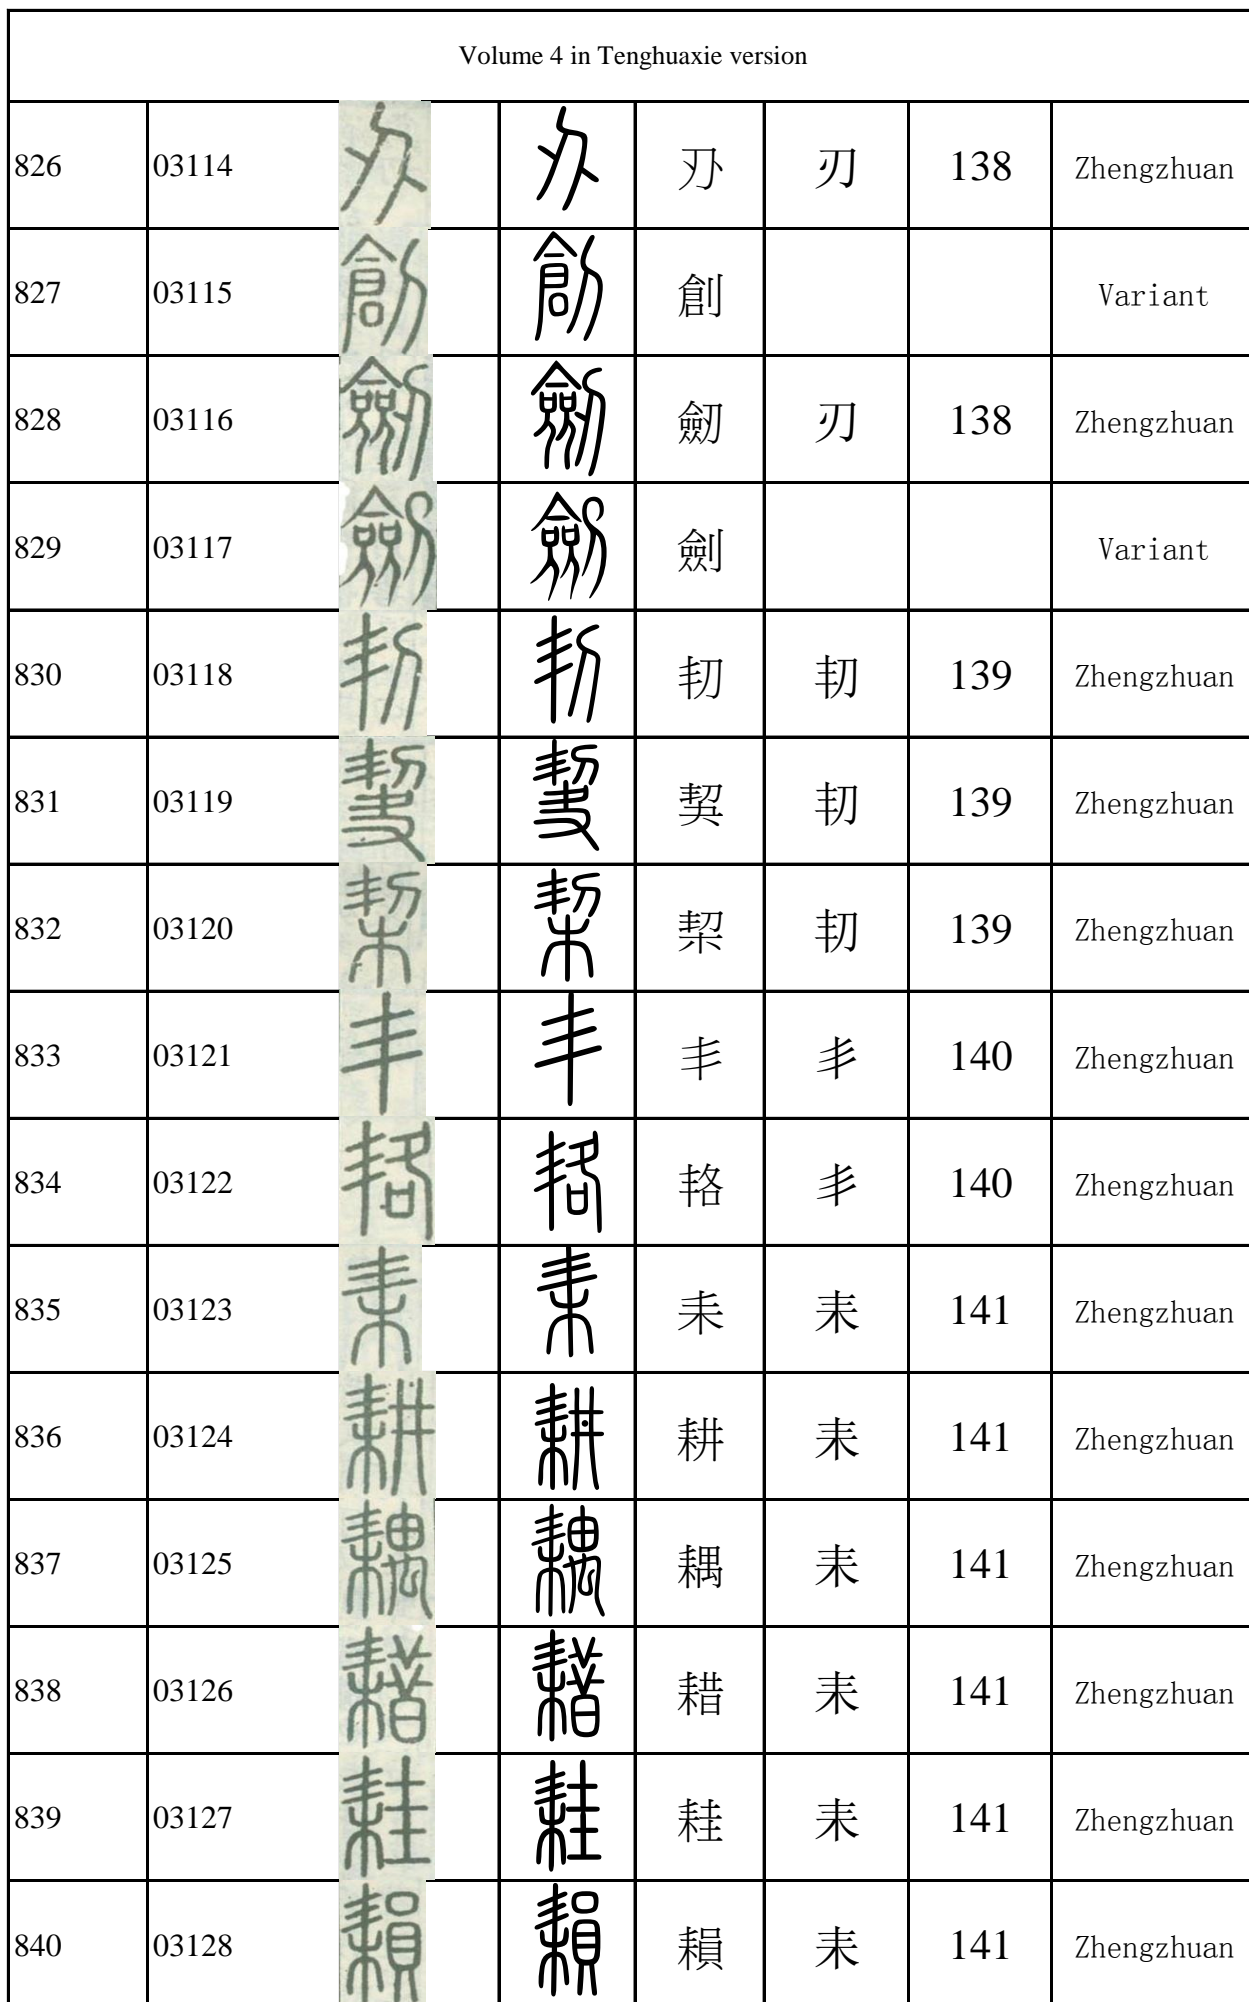 Volume 4 in Tenghuaxie version
826 03114 刅 刃 138 Zhengzhuan
827 03115 創 Variant
828 03116 劒 刃 138 Zhengzhuan
829 03117 劍 Variant
830 03118 㓞 㓞 139 Zhengzhuan
831 03119 契 㓞 139 Zhengzhuan
832 03120 栔 㓞 139 Zhengzhuan
833 03121 丯 丯 140 Zhengzhuan
834 03122 㓢 丯 140 Zhengzhuan
835 03123 耒 耒 141 Zhengzhuan
836 03124 耕 耒 141 Zhengzhuan
837 03125 耦 耒 141 Zhengzhuan
838 03126 耤 耒 141 Zhengzhuan
839 03127 耒 141 Zhengzhuan
840 03128 耒 141 Zhengzhuan